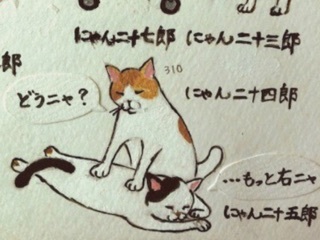 にゃん二十七郎 にゃん二十三郎
郎
310
にゃん二十四郎
どうニャ?
…もっと右ニャ
にゃん二十五郎